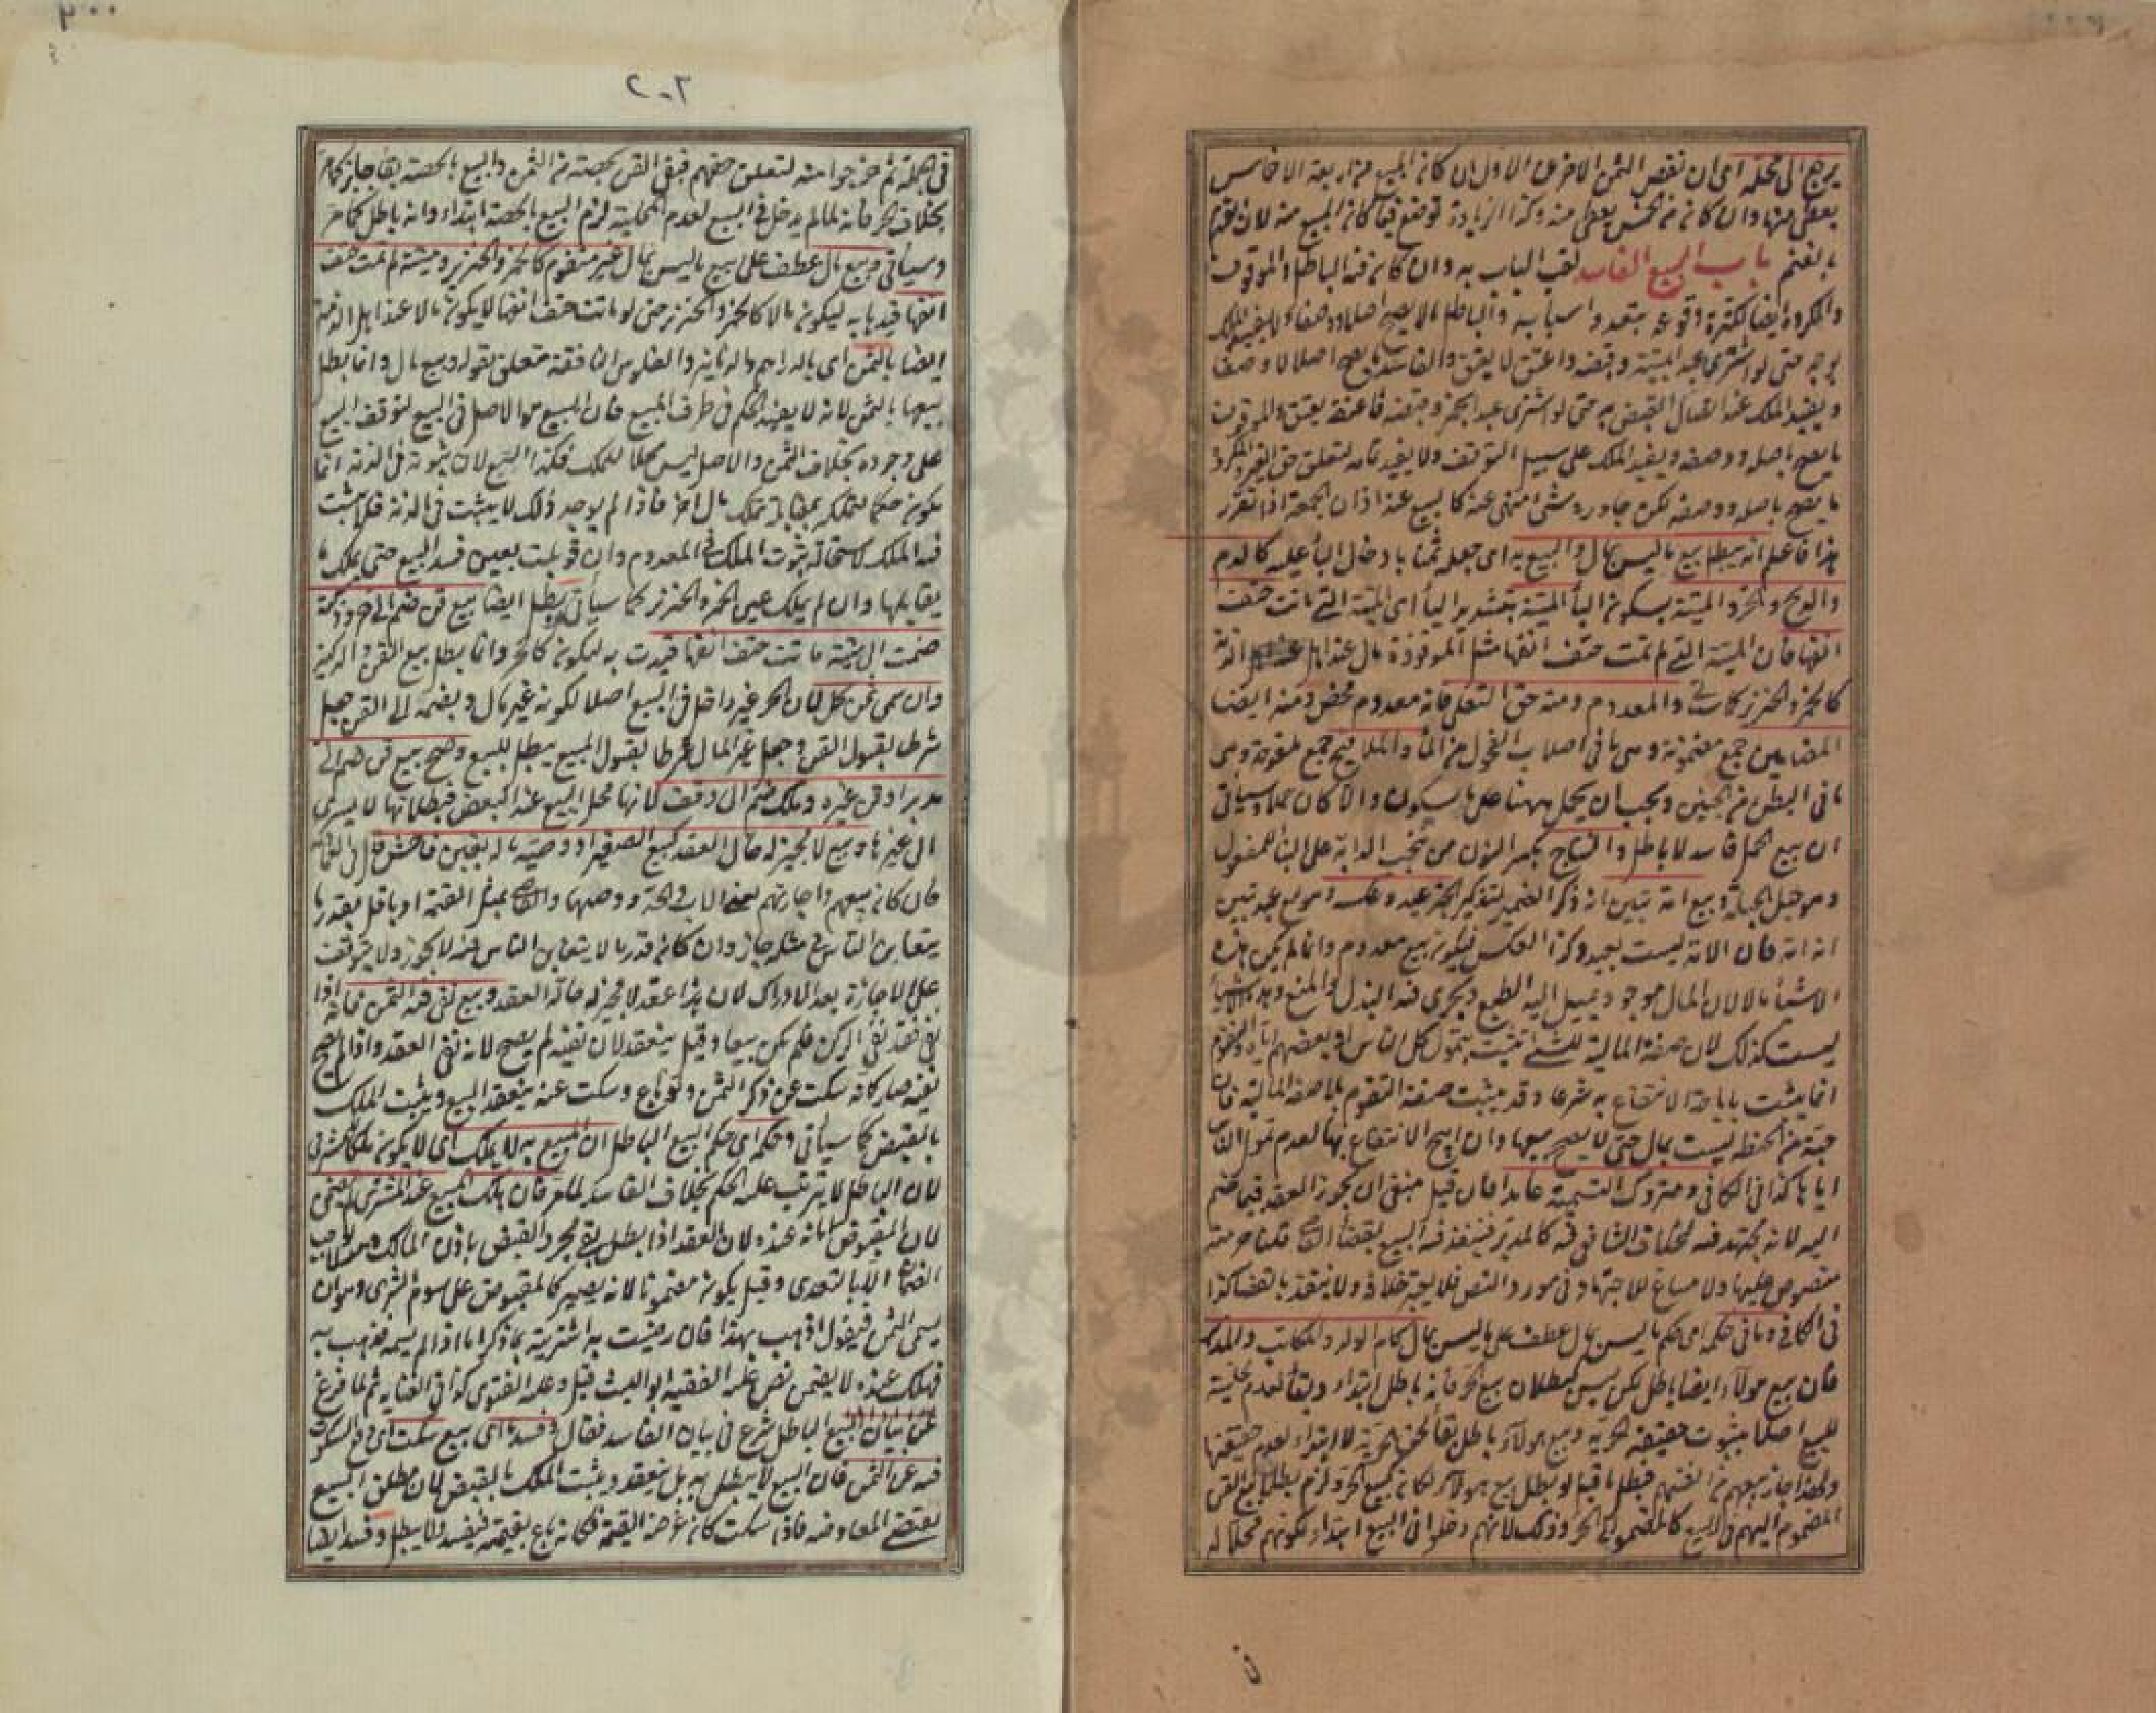 يرجع الى محله اى ان نقص الثمن الآخر عن الاول ان كان المبيع من اربعة الاخماس
يعطى منها وان كان من الخمس يعطى منه وكذا الزيادة توضع فيما كان المبيع منه لان الغرم
بالغنم باب البيع الفاسد لقب الباب به وان كان فيه الباطل والموقوف
والمكروه ايضا لكثرة وقوعه بتعدد اسبابه والباطل ما لا يصح اصلا ووصفا ولا يفيد الملك
بوجه حتى لو اشترى عبدا بميتة وقبضه واعتق لا يعتق والفاسد ما يصح اصلا لا وصفا
ويفيد الملك عند اتصال القبض به حتى لو اشترى عبدا بخمر وقبضه فاعتقه يعتق والموقوف
ما يصح باصله ووصفه ويفيد الملك على سبيل التوقف ولا يفيد تمامه لتعلق حق الغير والمكروه
ما يصح باصله ووصفه لكن جاوره شئ منهى عنه كالبيع عند اذان الجمعة اذا تقرر
هذا فاعلم انه يبطل بيع ما ليس بمال والبيع به اى جعله ثمنا بادخال الباء عليه كالدم
والريح والحر والميتة بسكون الياء الميتة بتشديد الياء اى الميتة التى ماتت حتف
انفها فان الميتة التى لم تمت حتف انفها مثل الموقوذة مال عند اهل الذمة
كالخمر والخنزير كما سيأتى والمعدوم ومنه حق التعلى فانه معدوم محض ومنه ايضا
المضامين جمع مضمونة وهى ما فى اصلاب الفحول من الماء والملاقيح جمع ملقوحة وهى
ما فى البطن من الجنين ويجب ان يحمل ههنا على ما سيكون والا كان حملا وسيأتى
ان بيع الحمل فاسد لا باطل والنتاج بكسر النون من نتجت الدابة على البناء للمفعول
وهو حبل الحبلة وبيع امة تبين انه ذكر الضمير لتذكير الخبر عبد وعكسه وهو بيع عبد تبين
انه امة فان الامة ليست بعبد وكذا العكس فيكون بيع معدوم وانما لم يكن هذه
الاشياء مالا لان المال موجود يميل اليه الطبع ويجرى فيه البذل والمنع وهذه الاشياء
ليست كذلك لان صفة المالية للشئ تثبت بتمول كل الناس او بعضهم اياه والتقوم
انما يثبت باباحة الانتفاع به شرعا وقد يثبت صفة التقوم بلا صفة المالية فان
حبة من الحنطة ليست بمال حتى لا يصح بيعها وان ابيح الانتفاع بها لعدم تمول الناس
اياها كذا فى الكافى ومتروك التسمية عامدا فان قيل ينبغى ان يجوز العقد فيما ضم
اليه لانه مجتهد فيه لخلاف الشافعى فيه كالمدبر فينفذ فيه البيع بقضاء القاضى قلنا حرمته
منصوص عليها ولا مساغ للاجتهاد فى مورد النص فلا يعتبر خلافه ولا ينفذ بالقضاء كذا
فى الكافى وما فى حكمه اى حكم ما ليس بمال عطف على ما ليس بمال كام الولد والمكاتب والمدبر
فان بيع هؤلاء ايضا باطل لكن ليس كبطلان بيع الحر فانه باطل ابتداء وبقاء لعدم محلية
للبيع اصلا بثبوت حقيقة الحرية وبيع هؤلاء باطل بقاء لحق الحرية لا ابتداء لعدم حقيقتها
ولهذا جاز بيعهم من انفسهم فبطل ما قيل لو بطل بيع هؤلاء لكان كبيع الحر ولزم بطلان بيع القن
المضموم اليهم فى البيع كالمضموم الى الحر وذلك لانهم دخلوا فى البيع ابتداء لكونهم محلا له
٢٠٦
فى الجملة ثم خرجوا منه لتعلق حقهم فبقى القن بحصته من الثمن والبيع بالحصة بقاء جائز كما مر
بخلاف الحر فانه لما لم يدخل فى البيع لعدم المحلية لزم البيع بالحصة ابتداء وانه باطل كما مر
وسيأتى وبيع مال عطف على بيع ما ليس بمال غير متقوم كالخمر والخنزير وميتة لم تمت حتف
انفها قيد بها به ليكون مالا كالخمر والخنزير حتى لو ماتت حتف انفها لا يكون مالا عند اهل الذمة
ايضا بالثمن اى بالدراهم والدنانير والفلوس النافقة متعلق بقوله وبيع مال وانما بطل
بيعها بالثمن لانه لا يفيد الحكم فى طرف المبيع فان المبيع هو الاصل فى البيع لتوقف البيع
على وجوده بخلاف الثمن والاصل ليس محلا للتملك فكذا التبع لان ثبوته فى الذمة انما
يكون حكما لتملكه بمقابلة تملك مال آخر فاذا لم يوجد ذلك لا يثبت فى الذمة فلا يثبت
فيه الملك لاستحالة ثبوت الملك فى المعدوم وان قوبلت بعين فسد البيع حتى يملك ما
يقابلها وان لم يملك عين الخمر والخنزير كما سيأتى وبطل ايضا بيع قن ضم الى حر وذكية
ضمت الى ميتة ماتت حتف انفها قيدت به ليكون كالحر وانما بطل بيع القن والذكية
وان سمى ثمن كل لان الحر غير داخل فى البيع اصلا لكونه غير مال وبضمه الى القن جعل
شرطا بقبول القن وجعل غير المال شرطا بقبول المبيع مبطل للبيع وصح بيع قن ضم الى
مدبر او قن غيره وملك ضم الى وقف لانها محل البيع عند البعض فبطلانها لا يسرى
الى غيرها وبيع لا مجيز له حال العقد كبيع الصغير او وصيه ماله بغبن فاحش قال فى العمادية
فان كان بيعهم واجارتهم يعنى الاب والجد ووصيهما والقاضى بمثل القيمة او باقل بقدر ما
يتغابن الناس فى مثله جاز وان كان قدر ما لا يتغابن الناس فيه لا يجوز ولا يتوقف
على الاجازة بعد الادراك لان هذا عقد لا مجيز له حالة العقد وبيع نفى فيه الثمن فانه اذا
نفى فقد نفى الركن فلم يكن بيعا وقيل ينعقد لان نفيه لم يصح لانه نفى العقد واذا لم يصح
نفيه صار كأنه سكت عن ذكر الثمن ولو باع وسكت عنه ينعقد البيع ويثبت الملك
بالقبض كما سيأتى وحكمه اى حكم البيع الباطل ان المبيع به لا يملك اى لا يكون ملكا للمشترى
لان الباطل لا يترتب عليه الحكم بخلاف الفاسد كما مر فان هلك المبيع عند المشترى لم يضمن
لان المقبوض امانة عنده لان العقد اذا بطل بقى مجرد القبض باذن المالك وهو لا يوجب
الضمان الا بالتعدى وقيل يكون مضمونا لانه يصير كالمقبوض على سوم الشرى وهو ان
يسمى الثمن فيقول اذهب بهذا فان رضيت به اشتريته بما ذكر اما اذا لم يسمه فذهب به
فهلك عنده لا يضمن نص عليه الفقيه ابو الليث قيل وعليه الفتوى كذا فى العناية ثم لما فرغ
عن بيان البيع الباطل شرع فى بيان الفاسد فقال وفسد اى بيع سكت اى وقع السكوت
فيه عن الثمن فان البيع لا يبطل به بل ينعقد ويثبت الملك بالقبض لان مطلق البيع
يقتضى المعاوضة فاذا سكت كان غرضه القيمة فكانه باع بقيمته فيفسد ولا يبطل وفسد ايضا